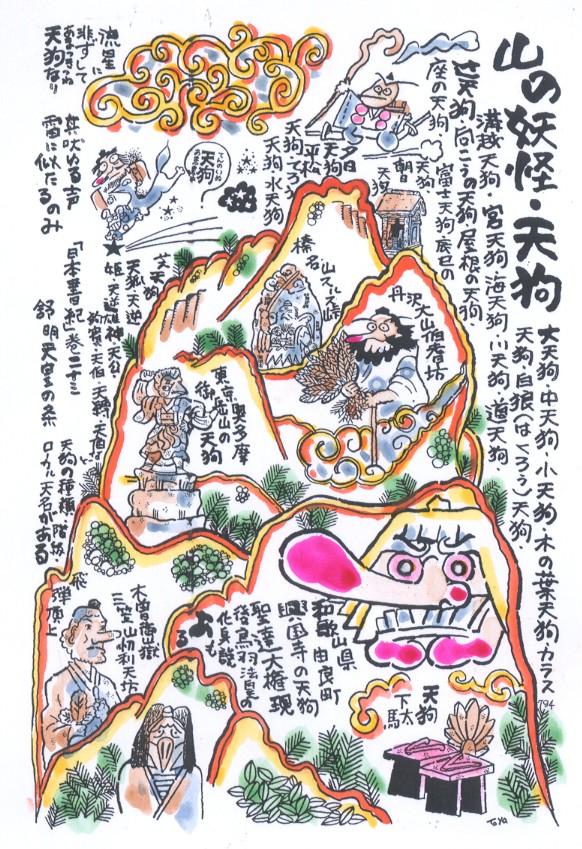 山の妖怪・天狗
大天狗・中天狗・小天狗・木の葉天狗カラス
天狗・白狼(はくろう)天狗・
溝越天狗・宮天狗・海天狗・川天狗・道天狗・
辻天狗・向こうの天狗・屋根の天狗
座の天狗
富士天狗・辰巳の
天狗
朝日
天狗
夕日
天狗
平松
天狗てろう
天狗・水天狗
流星に
非ずして
あまつきつね
天狗なり
其吠ゆる声
雷に似たるのみ
「日本書紀」巻二十三
舒明天皇の条
てんのいぬ
天狗
榛名山
丹沢
大山伯耆坊
奥多摩
東京
御岳山の
天狗
天狗の種類・階級
ローカル天名がある
飛騨
頂上
木曽御嶽
三笠山刀利天坊
和歌山県
由良町
興国寺の天狗
聖達大権現
後鳥羽法皇の
化身説
もある
天狗
下駄
794